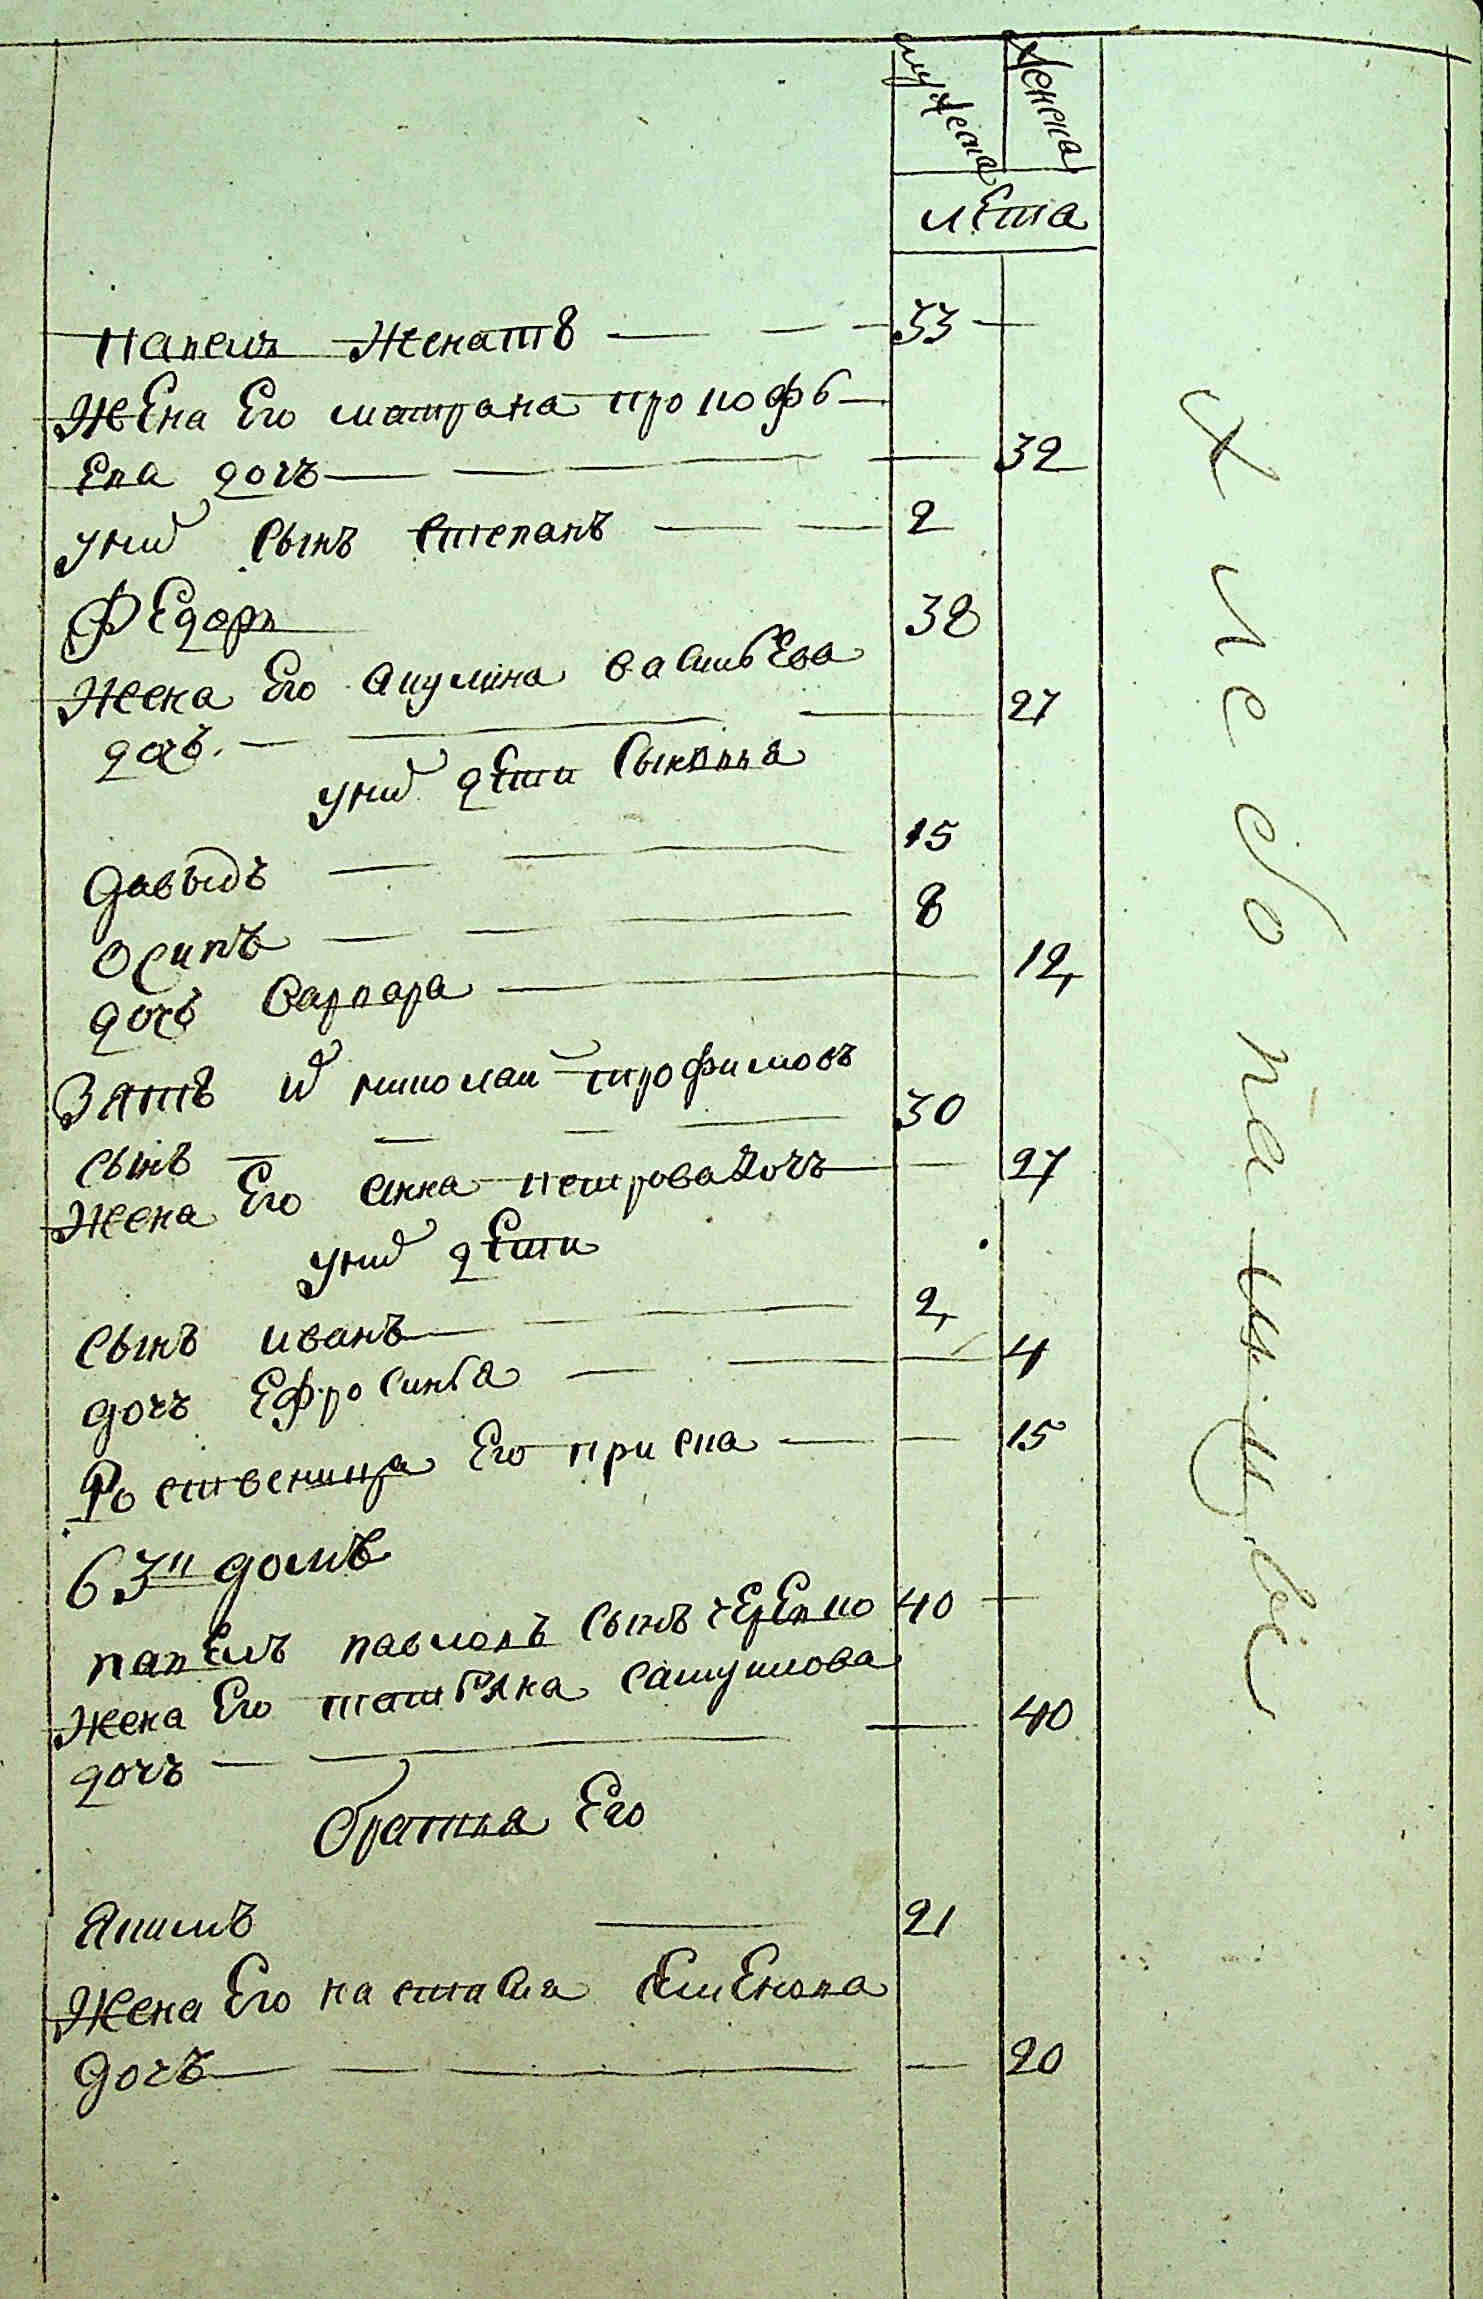 мужеска
женска
лета
павелъ женатъ 33
жена Его матрона прокофь
Ева дочь 32
уних сынъ степанъ 2
Федоръ 38
жена Его акулина васильева
дочь 27
уних дети сыновья
давыдъ 15
осипъ 8
дочь варвара 12
Зять их николаи трофимовъ
сынъ 30
жена Его анна петрова дочь 27
уних дети
сынъ иванъ 2
дочь Ефросинья 4
Роственица Его 15
63й домъ
павелъ павловъ сынъ 40
жена Его татьяна самуилова
дочь 40
братья Его
якимъ 21
жена Его настасья семенова
дочь 20
хлебопашцы